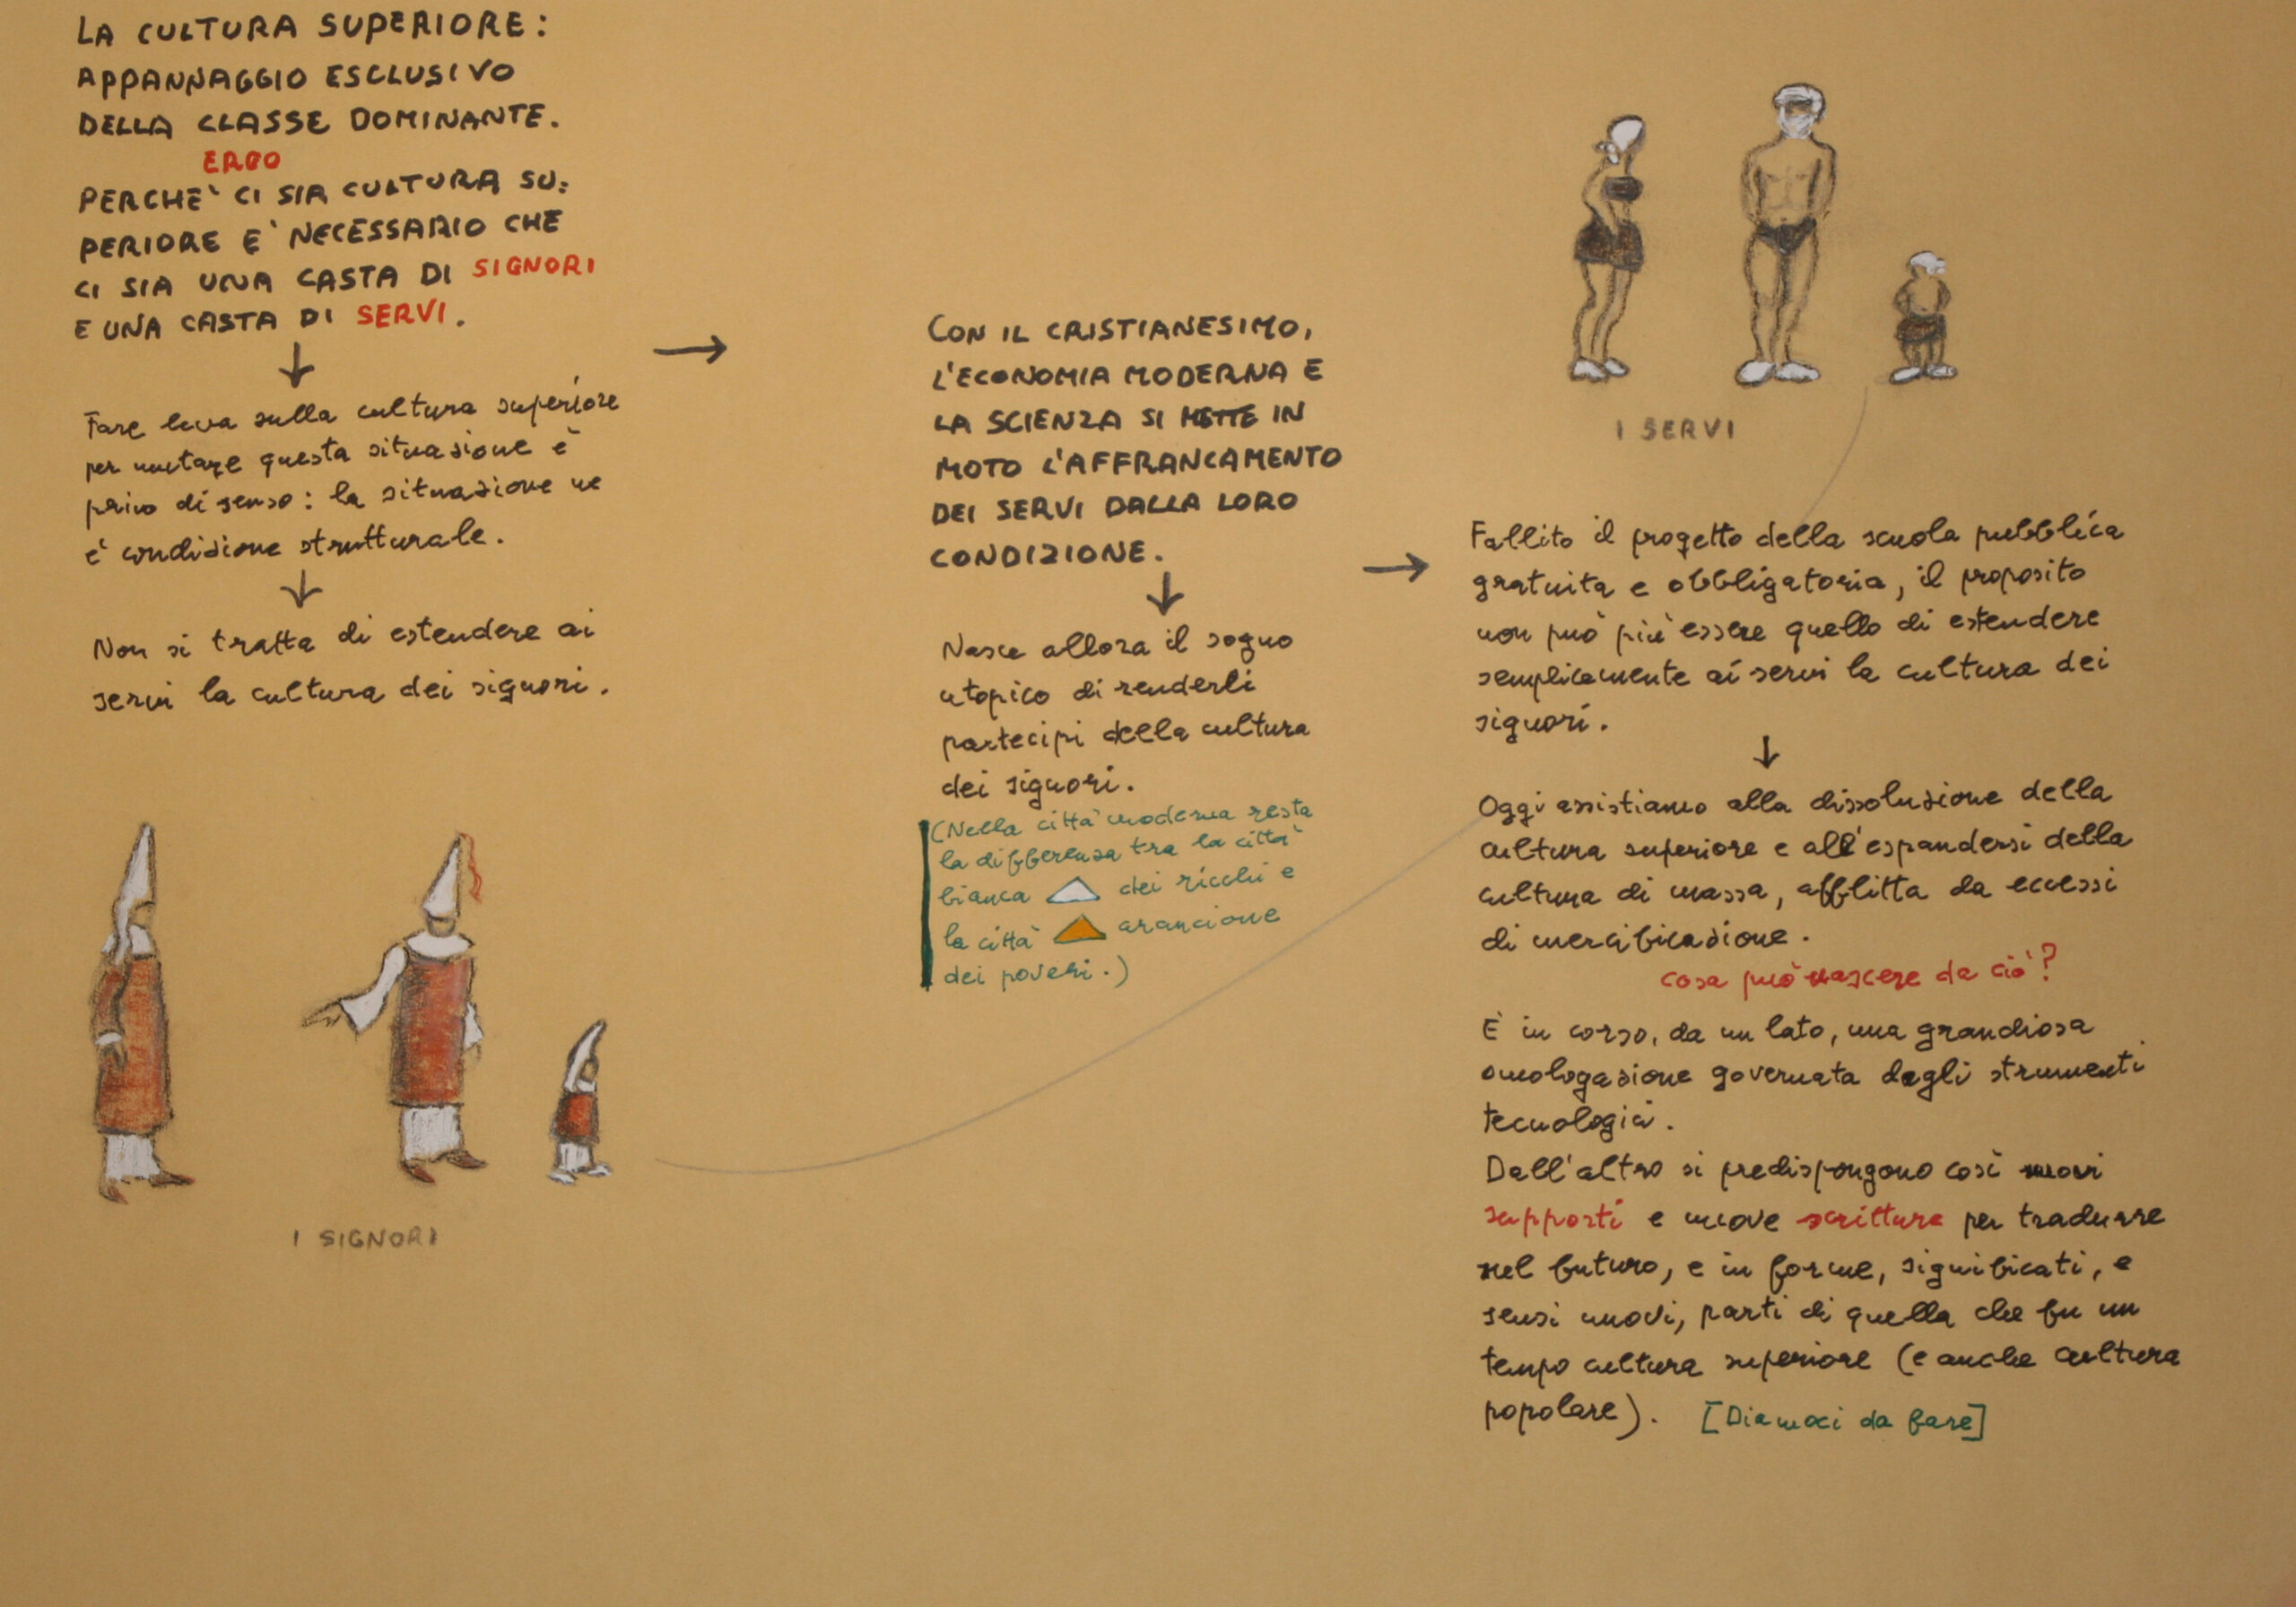 LA CULTURA SUPERIORE:
APPANNAGGIO ESCLUSIVO
DELLA CLASSE DOMINANTE.
ERGO
PERCHE' CI SIA CULTURA SU=
PERIORE E' NECESSARIO CHE
CI SIA UNA CASTA DI SIGNORI
E UNA CASTA DI SERVI.
Fare leva sulla cultura superiore
per mutare questa situazione è
privo di senso: la situazione ne
è condizione strutturale.
Non si tratta di estendere ai
servi la cultura dei signori.
I SIGNORI
CON IL CRISTIANESIMO,
L'ECONOMIA MODERNA E
LA SCIENZA SI METTE IN
MOTO L'AFFRANCAMENTO
DEI SERVI DALLA LORO
CONDIZIONE.
Nasce allora il sogno
utopico di renderli
partecipi della cultura
dei signori.
(Nella città moderna resta
la differenza tra la città
bianca dei ricchi e
la città arancione
dei poveri.)
I SERVI
Fallito il progetto della scuola pubblica
gratuita e obbligatoria, il proposito
non può più essere quello di estendere
semplicemente ai servi la cultura dei
signori.
Oggi assistiamo alla dissoluzione della
cultura superiore e all'espandersi della
cultura di massa, afflitta da eccessi
di mercificazione.
cosa può nascere da ciò?
È in corso, da un lato, una grandiosa
omologazione governata dagli strumenti
tecnologici.
Dall'altro si predispongono così nuovi
supporti e nuove scritture per tradurre
nel futuro, e in forme, significati, e
sensi nuovi, parti di quella che fu un
tempo cultura superiore (e anche cultura
popolare). [Diamoci da fare]